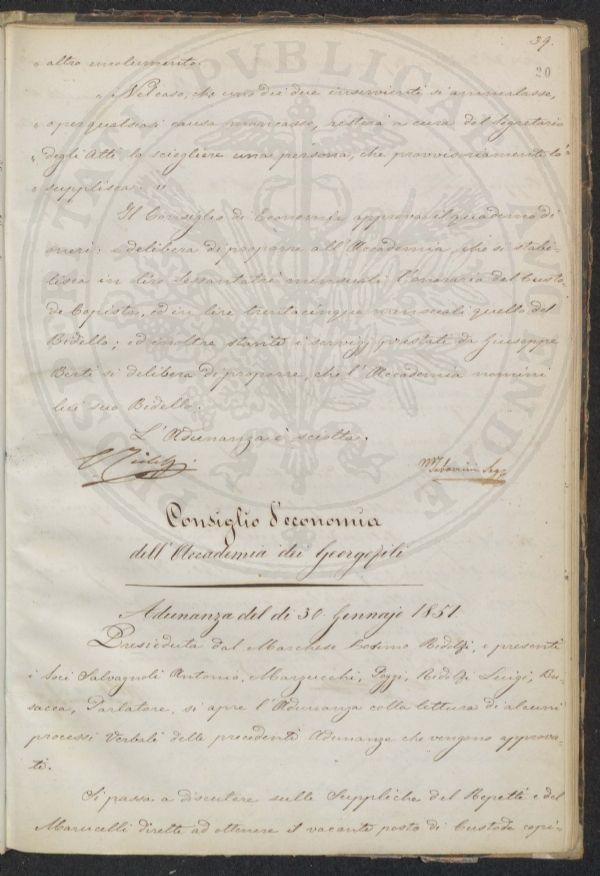 39.
20
" altro emolumento.
" Nel caso, che uno dei due inservienti si ammalasse,
" o per qualsiasi causa mancasse, resterà a cura del Segretario
" degli Atti lo sciegliere una persona, che provvisoriamente lo
" supplisca. "
Il Consiglio di Economia approva il quaderno di
oneri; e delibera di proporre all'Accademia, che si stabi-
lisca in lire sessantatrè mensuali l'onorario del Custo-
de Copista, ed in lire trentacinque mensuali quello del
Bidello; ed inoltre stante i servizj prestati da Giuseppe
Berti si delibera di proporre, che l'Accademia nomini
lui suo Bidello.
L'Adunanza è sciolta.
C. Ridolfi
Segr.
Consiglio d'economia
dell'Accademia dei Georgofili
Adunanza del dì 30. Gennajo 1851.
Presieduta dal Marchese Cosimo Ridolfi, e presenti
i Soci Salvagnoli Antonio, Marzucchi, Poggi, Ridolfi Luigi, Bu-
sacca, Parlatore, si apre l'Adunanza colla lettura di alcuni
processi Verbali delle precedenti Adunanze che vengono approva-
ti.
Si passa a discutere sulle Suppliche del Repetti e del
Marucelli dirette ad ottenere il vacante posto di Custode copi-
PROSPERITATI PVBLICAE AVGENDAE